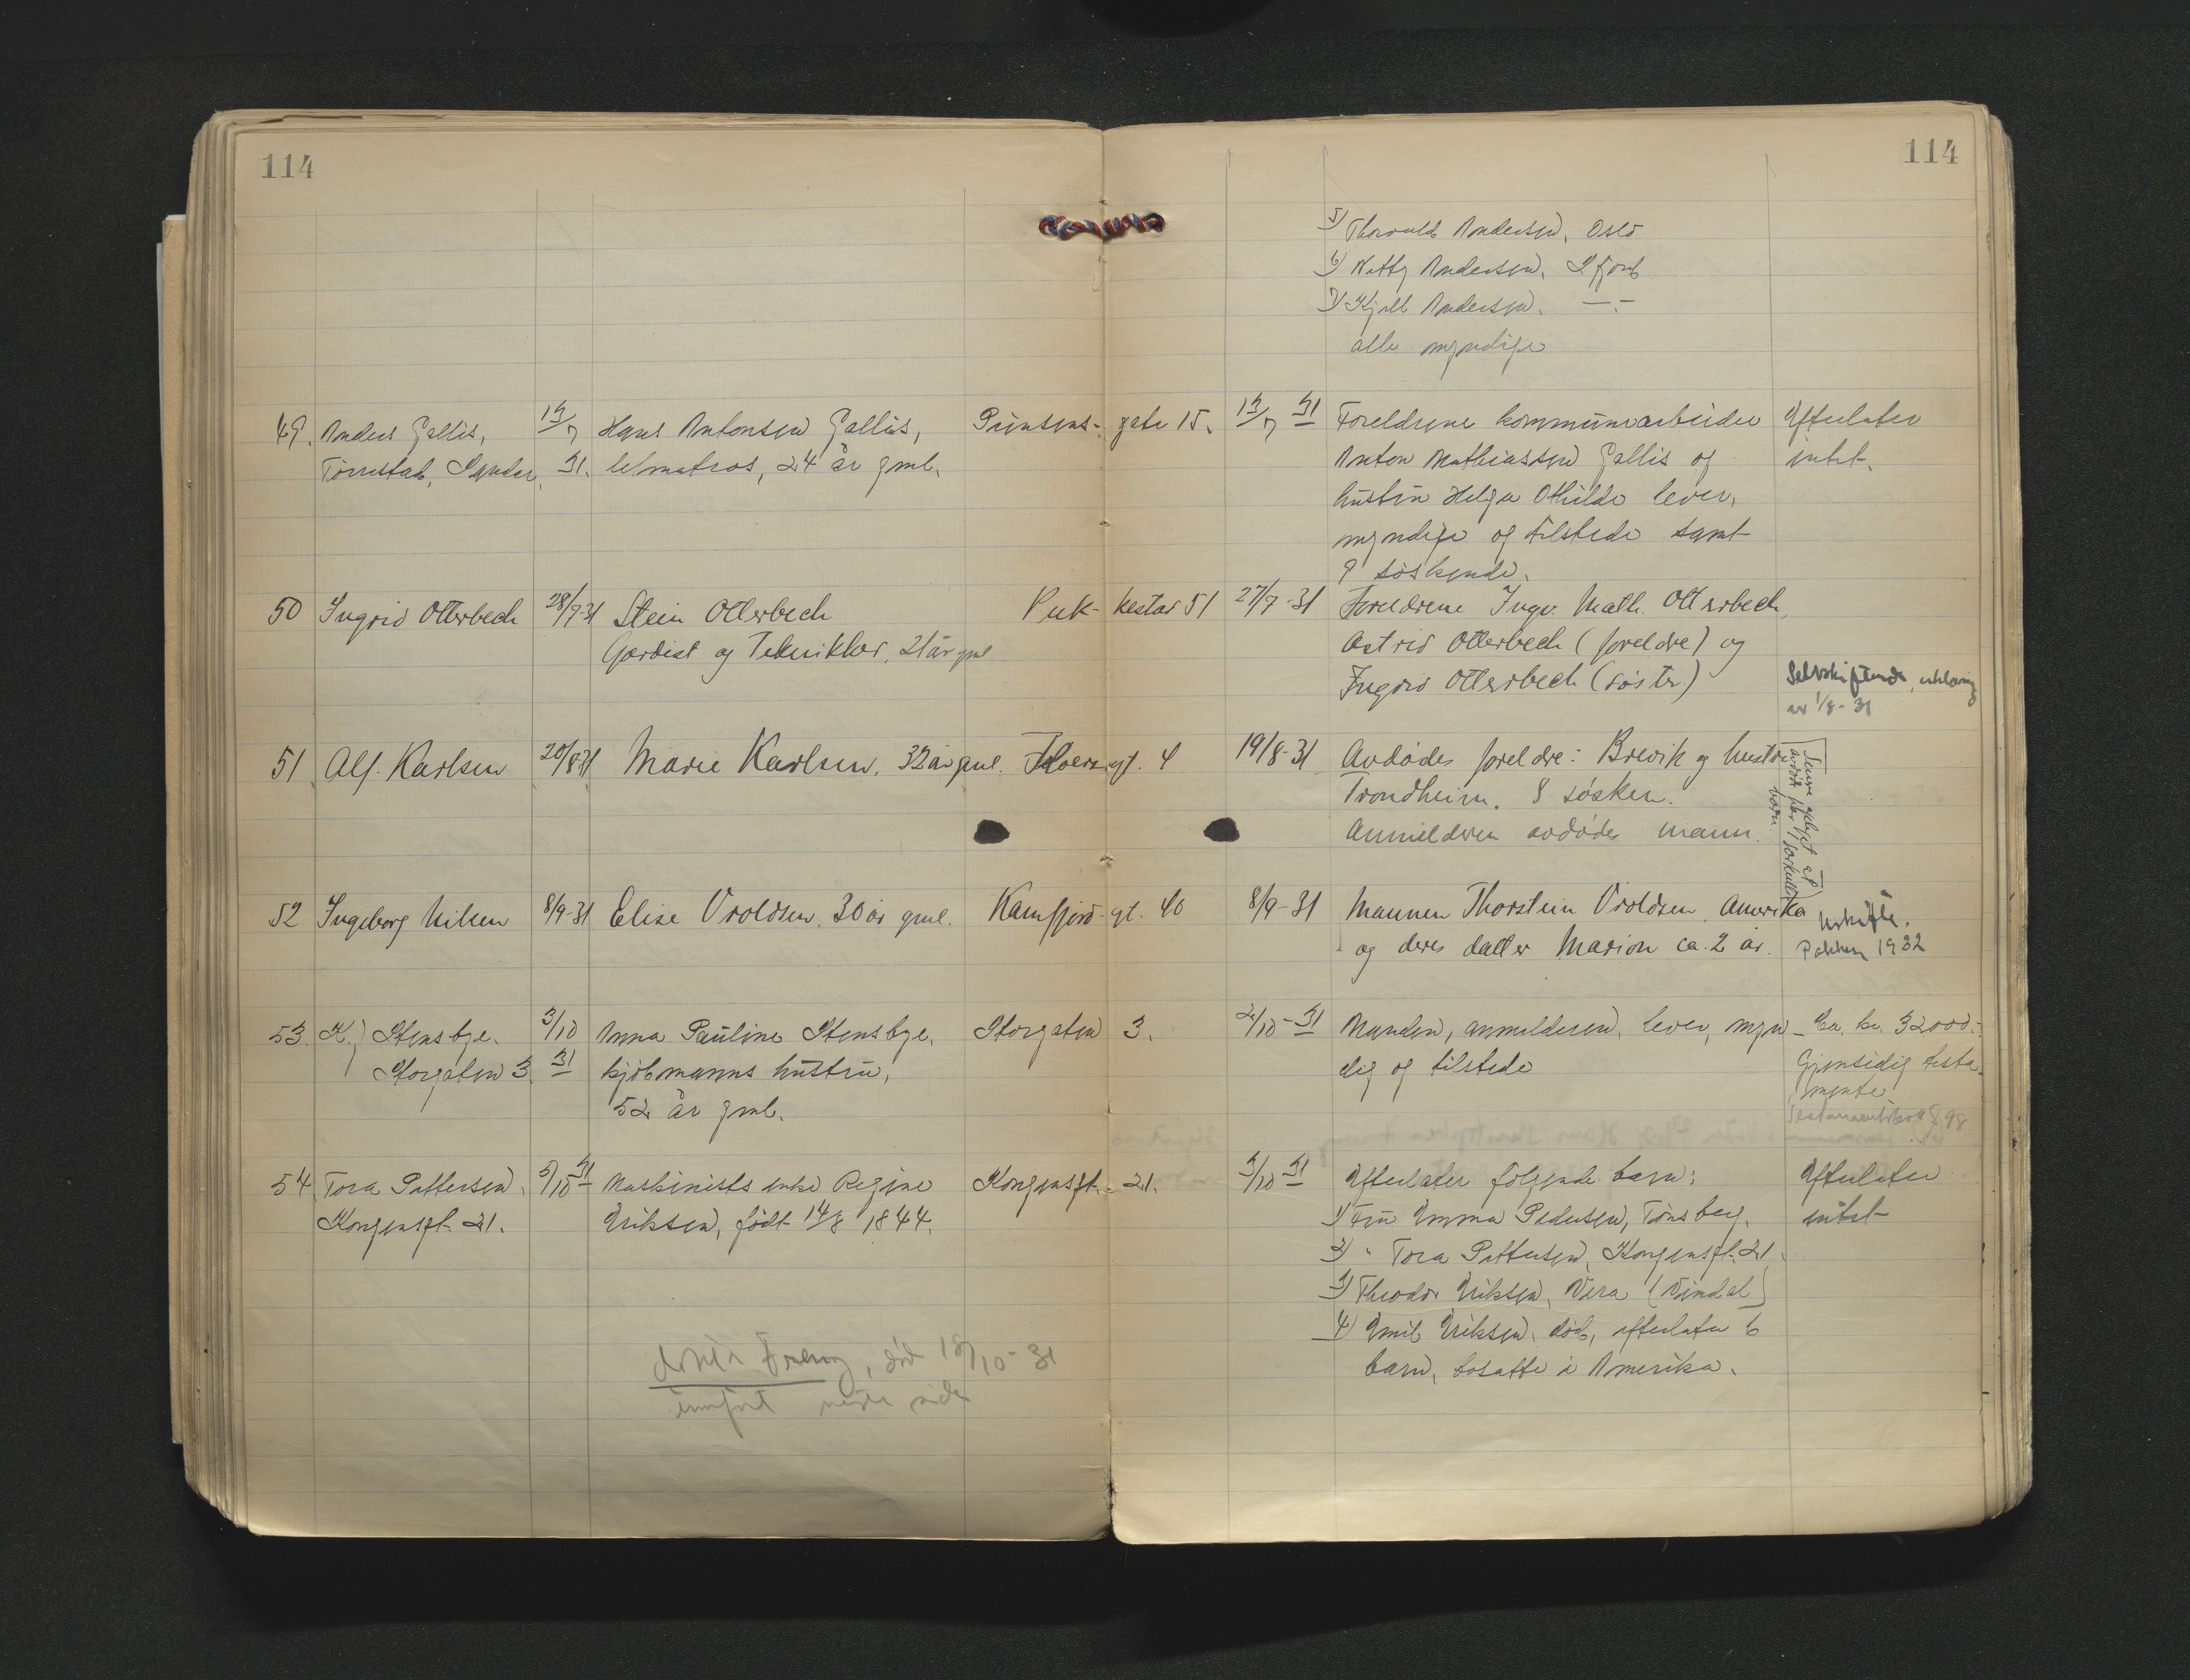 114
114
5) Thorvald Andersen, Oslo
6) Kitty Andersen, S.fjord
7) Kjell Andersen. — . —
alle myndige
49. Anders Gallis, 13/7 Hans Antonsen Gallis, Prinsens- gate 15. 13/7 31 Foreldrene kommunearbeider Efterlater
Torrestad, Sandar, 31. letmatros, 24 år gml. Anton Mathiassen Gallis og intet.
hustru Helga Othilde lever,
myndige og tilstede samt
9 søskende.
50 Ingrid Otterbech 28/7-31 Stein Otterbech Puk- kestad 51 27/7-31 Foreldrene Ingv. Math. Otterbech,
Gardist og Tekniker, 21 år gml Astrid Otterbech (foreldre) og
Ingrid Otterbech (søster.) Selvskiftende, erklæring
av 1/8-31
51 Alf. Karlsen 20/8-31 Marie Karlsen. 32 år gml. gt. 4 19/8-31 Avdødes foreldre: Brevik og hustru
Trondheim. 8 søsken.
Anmelderen avdødes mann.
Senere oplyst at
avdød har 1 særkulls
barn
52 Ingeborg Nilsen 8/9-31 Elise Vroldsen. 30 år gml. Kamfjord- gt. 40 8/9-31 Mannen Thorstein Vroldsen, Amerika Uskifte.
og deres datter Marion ca. 2 år. Pakken 1932
53. K. Stensbye. 3/10 Anna Pauline Stensbye, Storgaten 3. 2/10-31 Manden, anmelderen, lever, myn- Ca. kr. 32000.-
Storgaten 3. 31 kjøbmanns hustru, dig og tilstede Gjensidig testa-
52 år gml. mente
Testamentsprot. S. 98
54 Tora Pettersen, 5/10 31 Maskinists enke Regine Kongensgt. 21. 3/10 31 Efterlater følgende barn: Efterlater
Kongensgt. 21. Eriksen, født 14/8 1844. 1) Fru Emma Pedersen, Tønsberg. intet
2) " Tora Pettersen, Kongensgt. 21.
3) Theodor Eriksen, Vera (Vindal)
4) Emil Eriksen, død, efterlater 6
barn, bosatte i Amerika.
, død 18/10-31
innført neste side